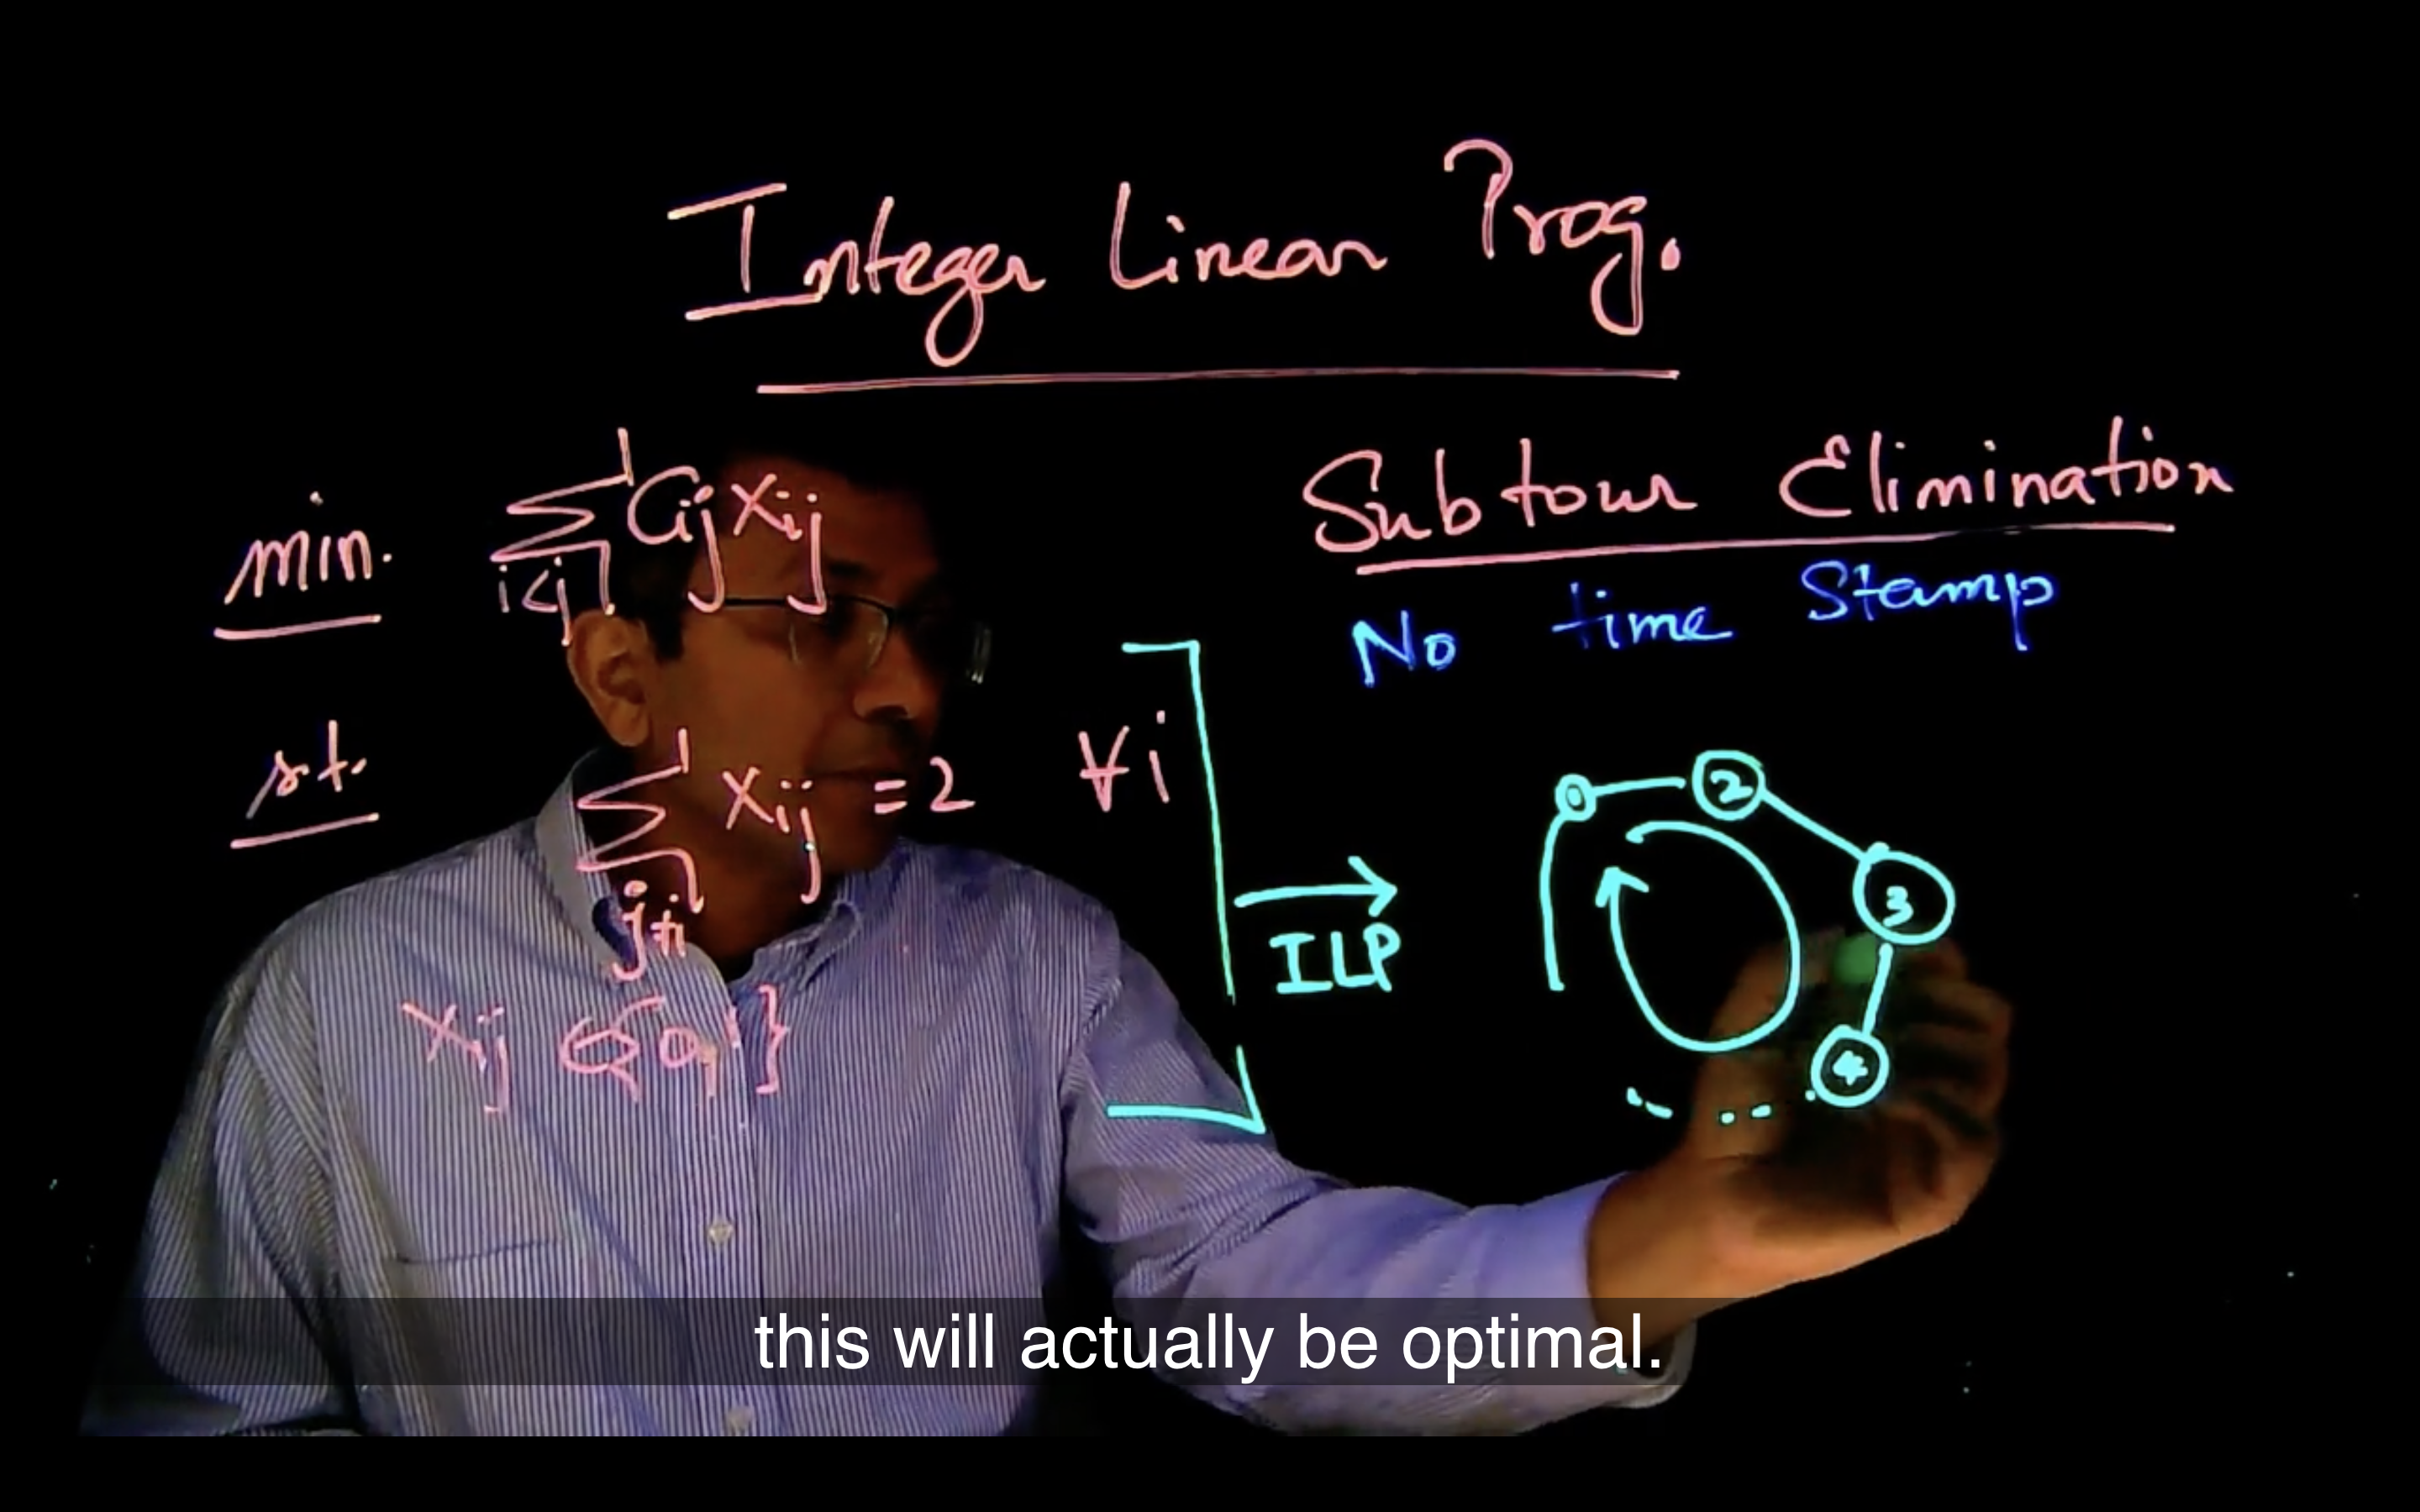 Integer Linear Prog.
min. ∑ i<j Cij Xij
s.t. ∑ j≠i Xij = 2 ∀i
Xij ∈ {0,1}
Subtour Elimination
No time Stamp
ILP
0 2
3
4
this will actually be optimal.